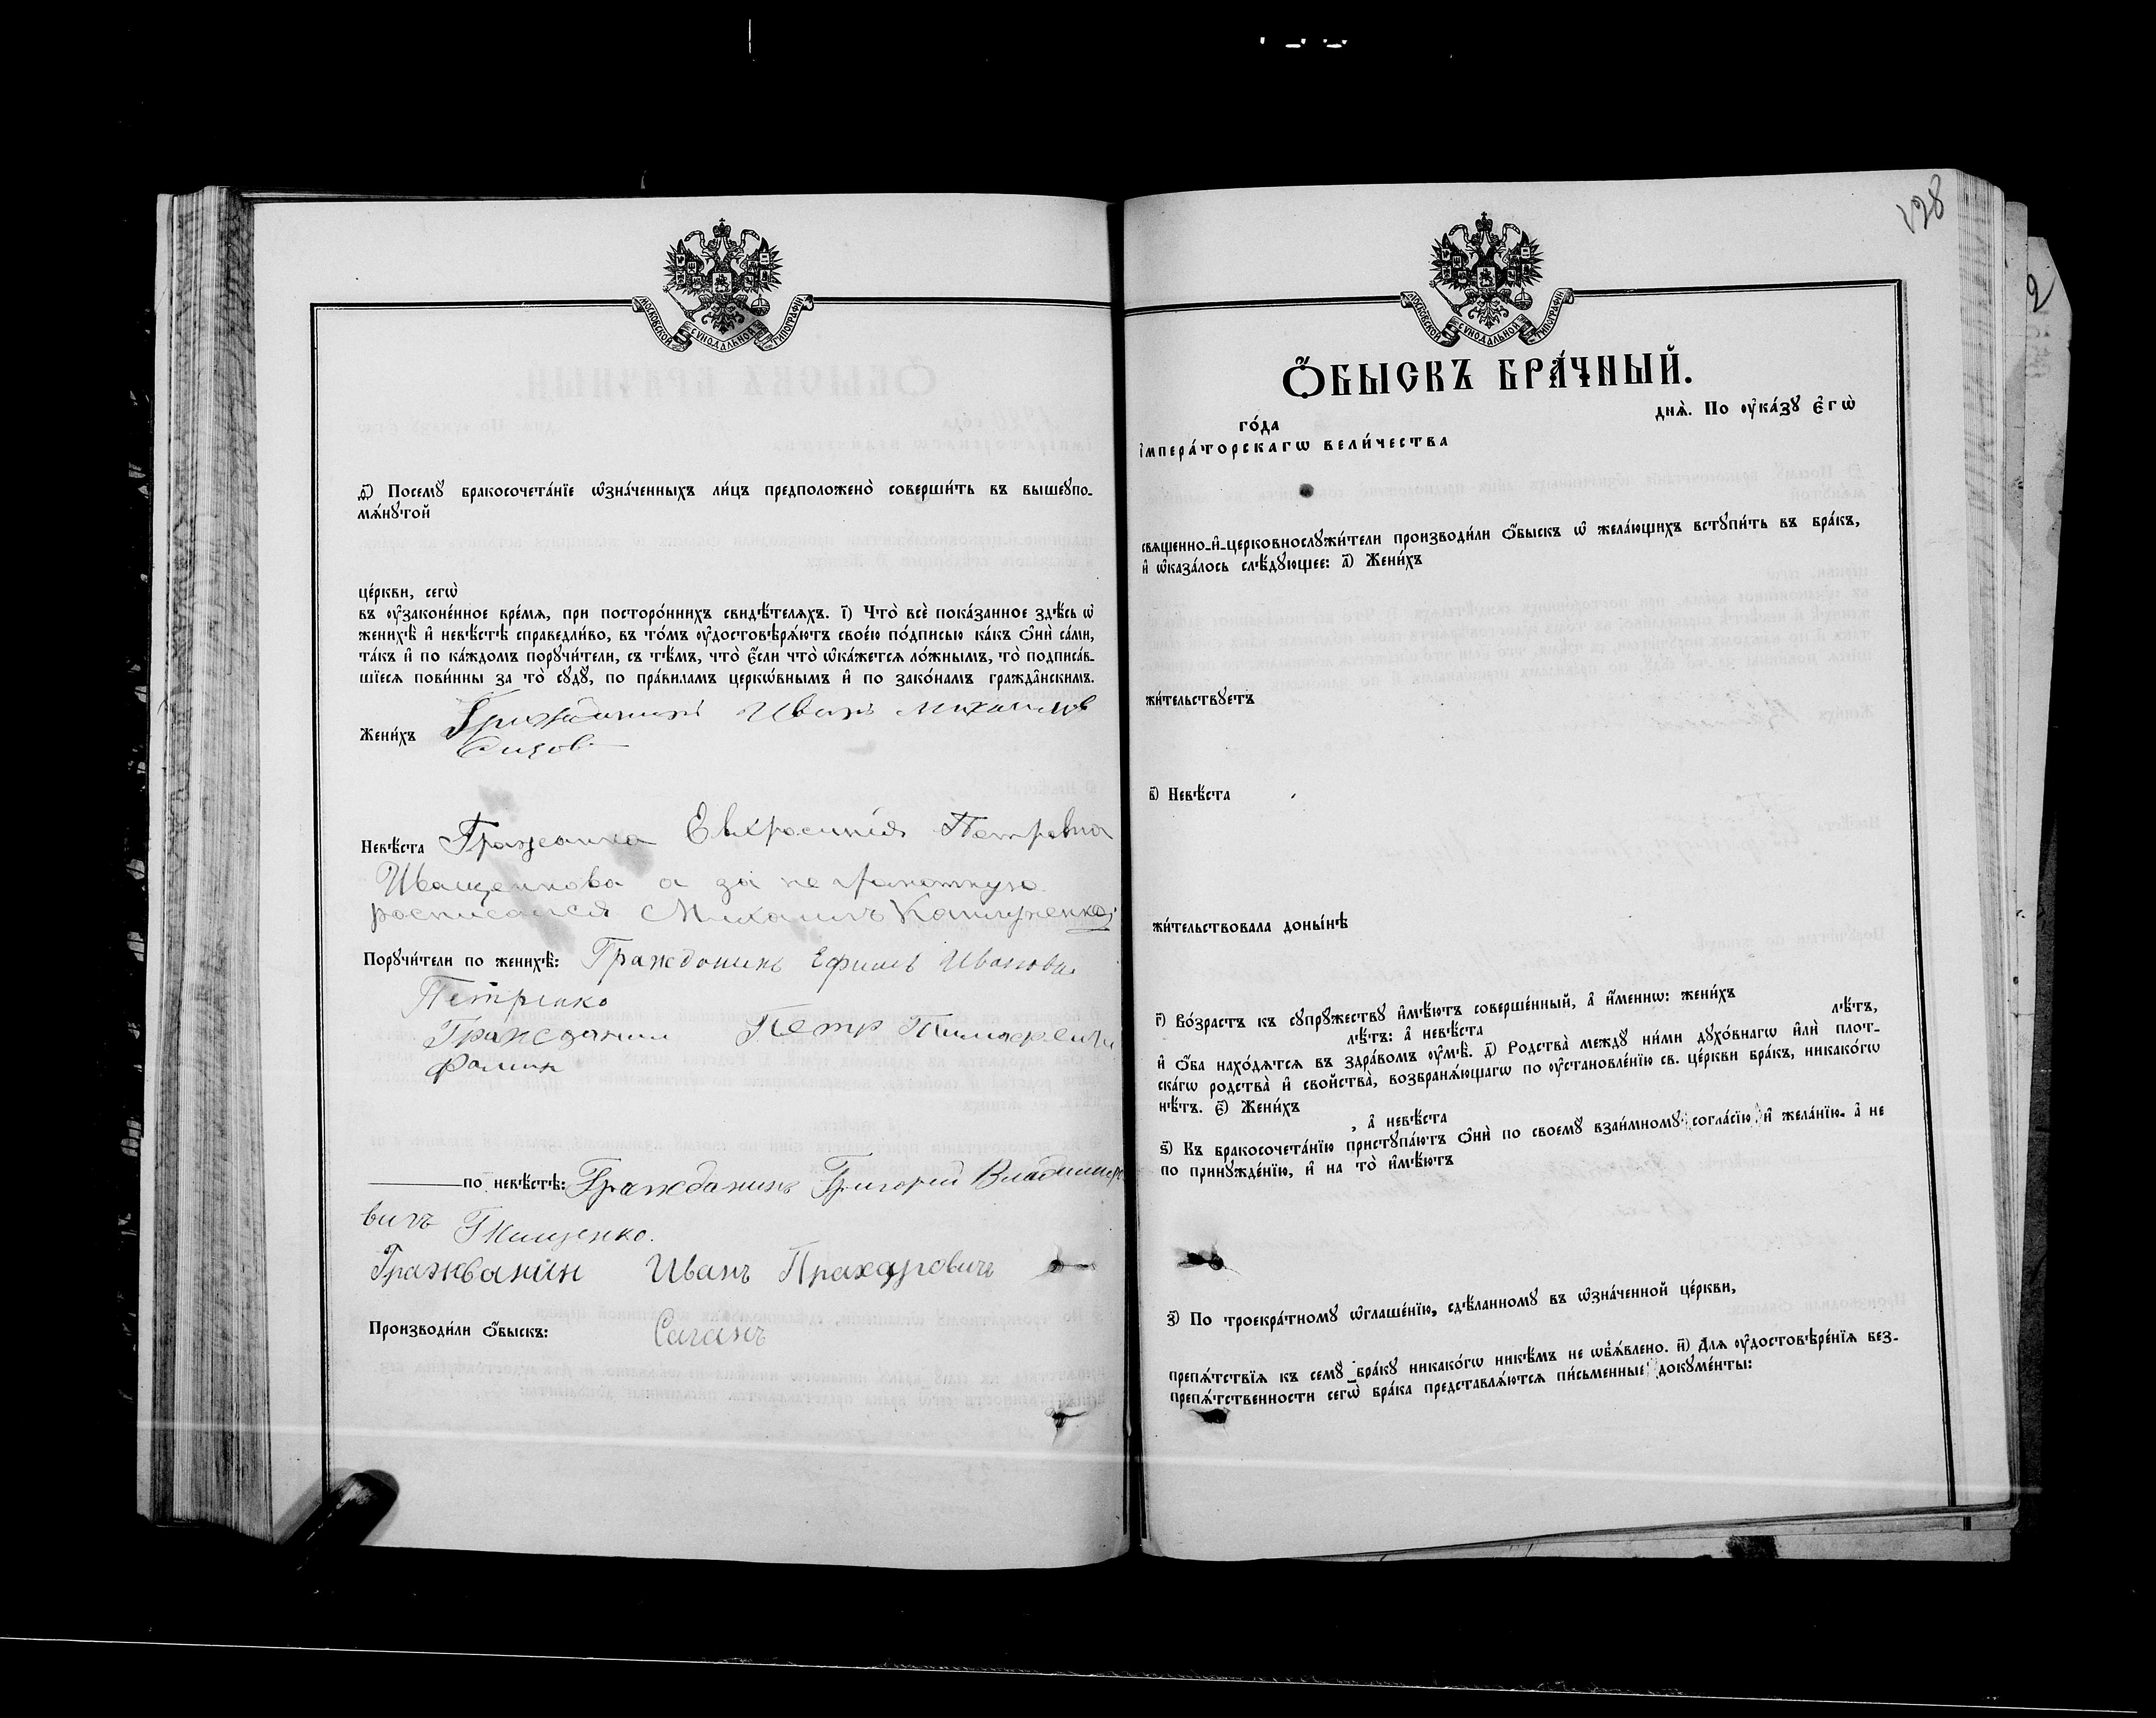 МОСКОВСКОЙ СѴНОДАЛЬНОЙ ТИПОГРАФІИ
ѳ҃) Посемꙋ бракосочета́нїе ѡ҆зна́ченныхъ ли́цъ предположено̀ соверши́ть въ вышеꙋпо-
мѧ́нꙋтой
це́ркви, сегѡ̀
въ ᲂу҆зако́ненное вре́мѧ, при посторо́ннихъ свидѣ́телѧхъ. і҃) Что̀ всѐ пока́занное здѣ́сь ѡ҆
женихѣ̀ и҆ невѣ́стѣ справедли́во, въ то́мъ ᲂу҆достовѣрѧ́ютъ свое́ю по́дписью ка́къ ѻ҆нѝ са́ми,
та́къ и҆ по ка́ждомъ порꙋчи́тели, съ тѣ́мъ, что̀ є҆́сли что̀ ѡ҆ка́жетсѧ ло́жнымъ, то̀ подписа́в-
шїесѧ пови́нны за то̀ сꙋдꙋ̀, по пра́виламъ церкѡ́внымъ и҆ по зако́намъ гражда̑нскимъ.
Жени́хъ Гражданинъ Иванъ Михаилов
Сизов
Невѣ́ста Гражанка Евхросинія Петровна
Иващенкова а за не грамотную
росписался Михаилъ
Порꙋчи́тели по женихѣ̀: Гражданинъ Ефимъ Иванова
Петренко
Гражданин Петр Тимофеевич
Фомин
по невѣ́стѣ: Гражданинъ Григорій Владимиро
вичъ Гнищенко.
Гражванин Иванъ Прахаровичъ
Саганъ
Производи́ли ѻ҆́быскъ:
128
2
МОСКОВСКОЙ СѴНОДАЛЬНОЙ ТИПОГРАФІИ
Ѻ҆́БЫСКЪ БРА́ЧНЫЙ.
го́да днѧ̀. По ᲂу҆ка́зꙋ є҆гѡ̀
і҆мпера́торскагѡ вели́чества
свѧщенно-и҆-церковнослꙋжи́тели производи́ли ѻ҆́быскъ ѡ҆ жела́ющихъ встꙋпи́ть въ бра́къ,
и҆ ѡ҆каза́лось слѣ́дꙋющее: а҃) Жени́хъ
жи́тельствꙋетъ
в҃) Невѣ́ста
жи́тельствовала доны́нѣ
г҃) Во́зрастъ къ сꙋпрꙋжествꙋ и҆мѣ́ютъ соверше́нный, а҆ и҆́меннѡ: жени́хъ лѣ́тъ,
лѣ́тъ: а҆ невѣ́ста
и҆ ѻ҆́ба нахо́дѧтсѧ въ здра́вомъ ᲂу҆мѣ̀. д҃) Родства̀ междꙋ ни́ми дꙋхо́внагѡ и҆лѝ плот-
ска́гѡ родства̀ и҆ свойства̀, возбранѧ́ющагѡ по ᲂу҆становле́нїю св. це́ркви бра́къ, никако́гѡ
нѣ́тъ. є҃) Жени́хъ
, а҆ невѣ́ста
ѕ҃) Къ бракосочета́нїю пристꙋпа́ютъ ѻ҆нѝ по своемꙋ взаи́мномꙋ согла́сїю и҆ жела́нїю. а҆ не
по принꙋжде́нїю, и҆ на то̀ и҆мѣ́ютъ
з҃) По троекра́тномꙋ ѡ҆глаше́нїю, сдѣ́ланномꙋ въ ѡ҆зна́ченной це́ркви,
препѧ́тствїѧ къ семꙋ̀ бра́кꙋ никако́гѡ никѣ́мъ не ѡ҆б̾ѧ́влено. и҃) Длѧ ᲂу҆достовѣре́нїѧ без-
препѧ́тственности сегѡ̀ бра́ка представлѧ́ютсѧ пи́сьменные докꙋме́нты: